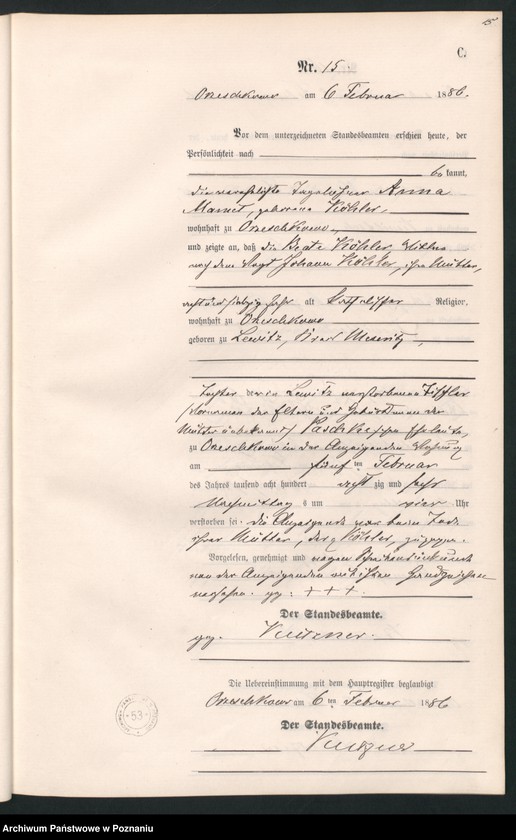 C.
Nr. 15
Orzeschkowo am 6 Februar 1886.
Vor dem unterzeichneten Standesbeamten erschien heute, der
Persönlichkeit nach
bekannt,
die verehelichte Tagelöhner Anna
geborene Köhler,
wohnhaft zu Orzeschkowo,
und zeigte an, daß die Beate Köhler, Wittwe
nach dem Vogt Johann Köhler, ihre Mutter,
alt katholischer Religion,
wohnhaft zu Orzeschkowo
geboren zu Lewitz, Kreis Meseritz,
Tochter der in Lewitz verstorbenen Tischler
Vornamen der Eltern und Geburtsname der
Mutter unbekannt Eheleute,
zu Orzeschkowo in der Anzeigenden Wohnung
am fünf ten Februar
des Jahres tausend acht hundert achtzig und sechs
Nachmittags um vier Uhr
verstorben sei. die Anzeigende war beim Tode
ihrer Mutter, der Köhler, zugegen.
Vorgelesen, genehmigt und wegen Schreibensunkunde
von der Anzeigenden mit ihrem Handzeichen
versehen. gez. + + +
Der Standesbeamte.
gez.
Die Uebereinstimmung mit dem Hauptregister beglaubigt
Orzeschkowo am 6 ten Februar 1886
Der Standesbeamte.
53
Archiwum Państwowe w Poznaniu